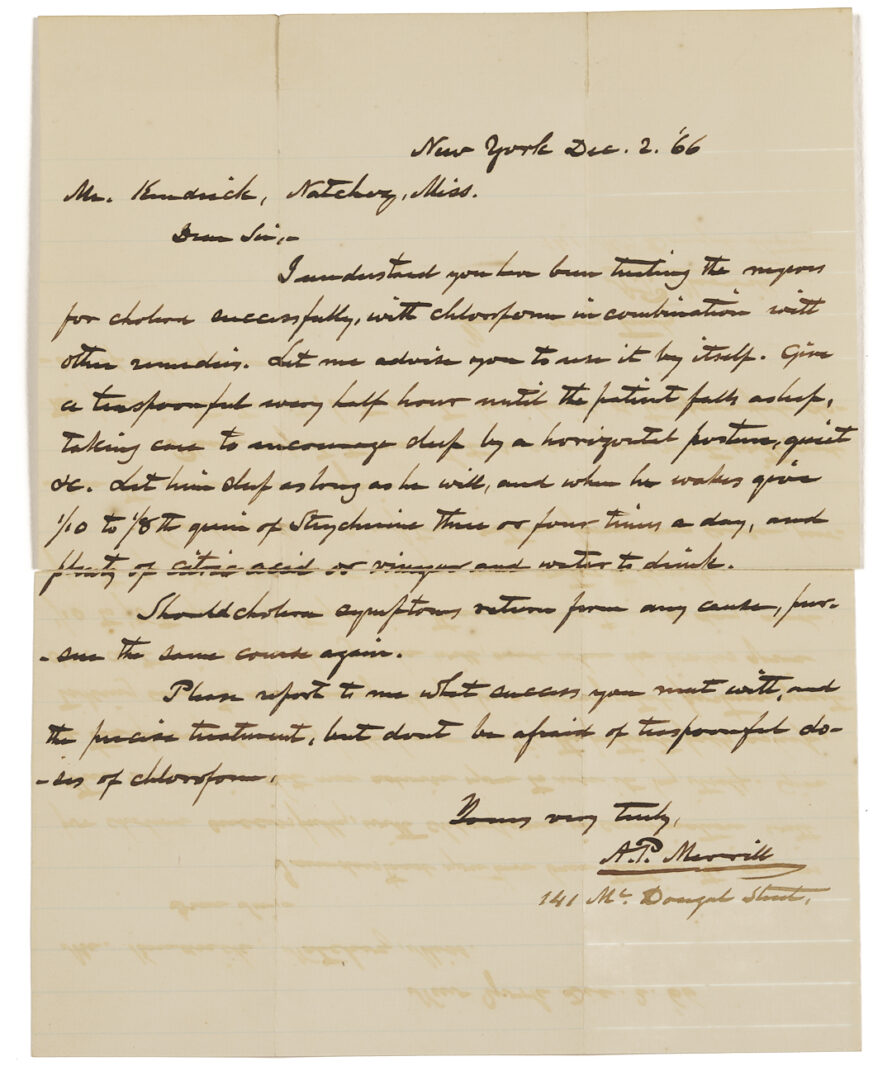 New York Dec. 2. '66
Mr. Kendrick, Natchez, Miss.
Dear Sir,-
I understand you have been treating the negroes
for cholera successfully, with chloroform in combination with
other remedies. Let me advise you to use it by itself. Give
a teaspoonful every half hour until the patient falls asleep,
taking care to encourage sleep by a horizontal posture, quiet
&c. Let him sleep as long as he will, and when he wakes give
1/10 to 1/8th grain of Strychnine three or four times a day, and
plenty of citric acid or vinegar and water to drink.
Should cholera symptoms return from any cause, pur-
-sue the same course again.
Please report to me what success you meet with, and
the precise treatment, but dont be afraid of teaspoonful do-
-ses of chloroform.
Yours very truly,
A.P. Merrill
141 Mc. Dougal Street,